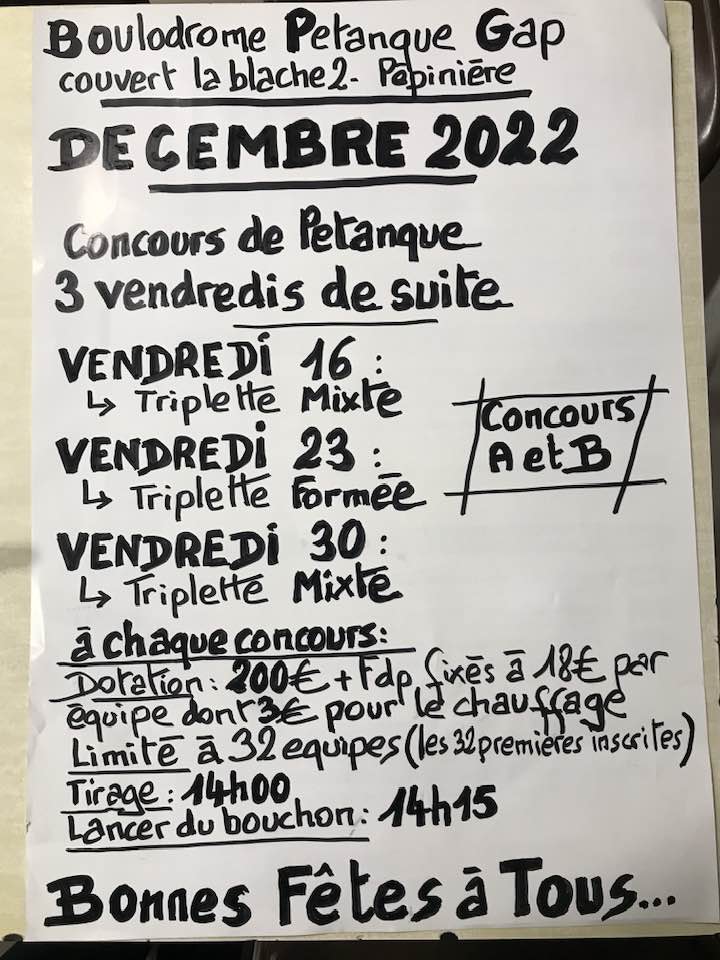 Boulodrome Petanque Gap
couvert la blache 2 - Pēpinière
DECEMBRE 2022
Concours de Petanque
3 vendredis de suite
VENDREDI 16 :
↳ Triplette Mixte
Concours
A et B
VENDREDI 23 :
↳ Triplette Formēe
VENDREDI 30 :
↳ Triplette Mixte
ā chaque concours :
Dotation : 200€ + Fdp fixēs ā 18€ par
ēquipe dont 3€ pour le chauffage
Limitē ā 32 equipes (les 32 premières inscrites)
Tirage : 14h00
Lancer du bouchon : 14h15
Bonnes Fêtes ā Tous...